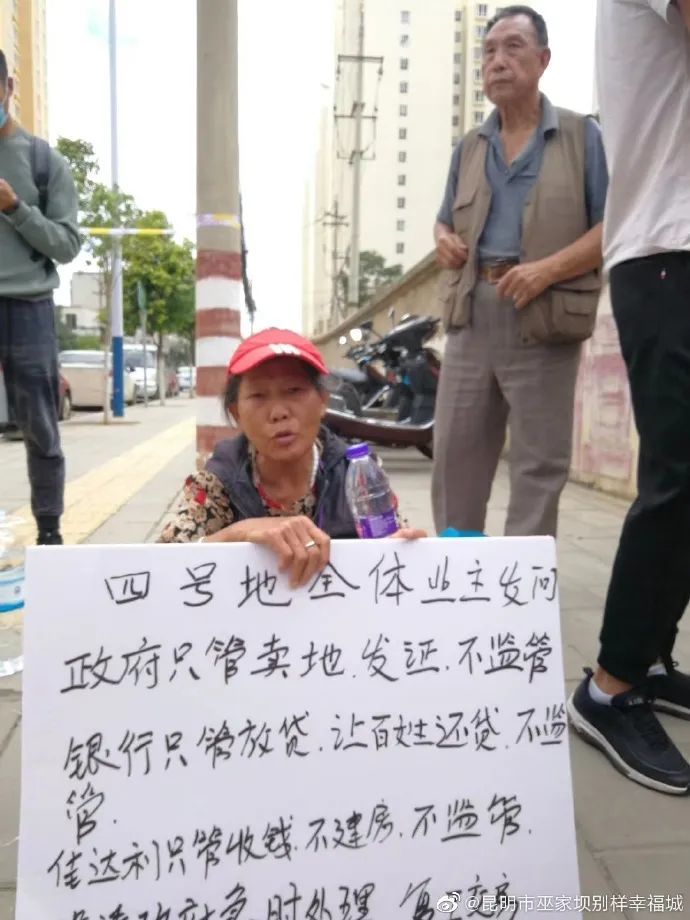 四号地全体业主发问
政府只管卖地、发证、不监管
银行只管放贷、让百姓还贷、不监
管.
佳达利只管收钱、不建房、不监管.
时处理
@昆明市巫家坝别样幸福城